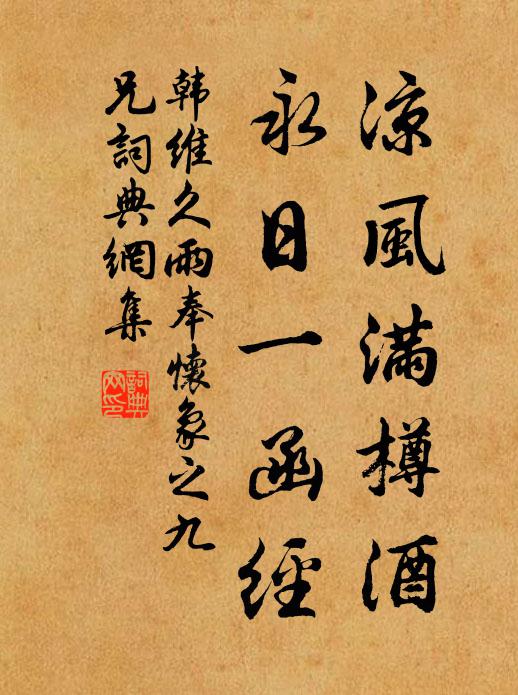 凉風滿樽酒
永日一函經
韩维久雨奉懷象之九
兄詞典網集
詞典网印